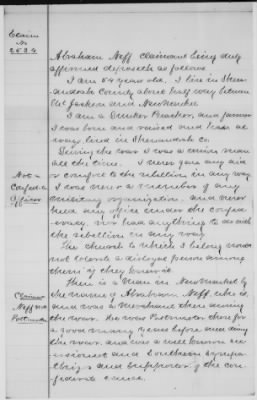 Claim
No
2534
Abraham Neff Claimant being duly
affirmed deposeth as follows
I am 54 years old, I live in Shen-
andoah County about half way between
Mt Jackson and New Market
I am a Tunker Preacher, and farmer
I was born and raised and have al-
ways lived in Shenandoah Co.
During the war I was a union man
all the time. I never gave any aid
or comfort to the rebellion in any way
Not a
Confed.
Officer
I was never a member of any
military organization, and never
held any office under the confed-
eracy nor had anything to do with
the rebellion in any way.
The church to which I belong would
not tolerate a disloyal person among
them if they knew it.
Claimant
Neff not
Postmaster
There is a man in New Market by
the name of Abraham Neff, who is,
and was a Merchant there during
the war. He was Postmaster there for
a good many years before and during
the war, and was a well known se-
cessionist and Southern sympa-
thizer and supporter of the con-
federate cause.